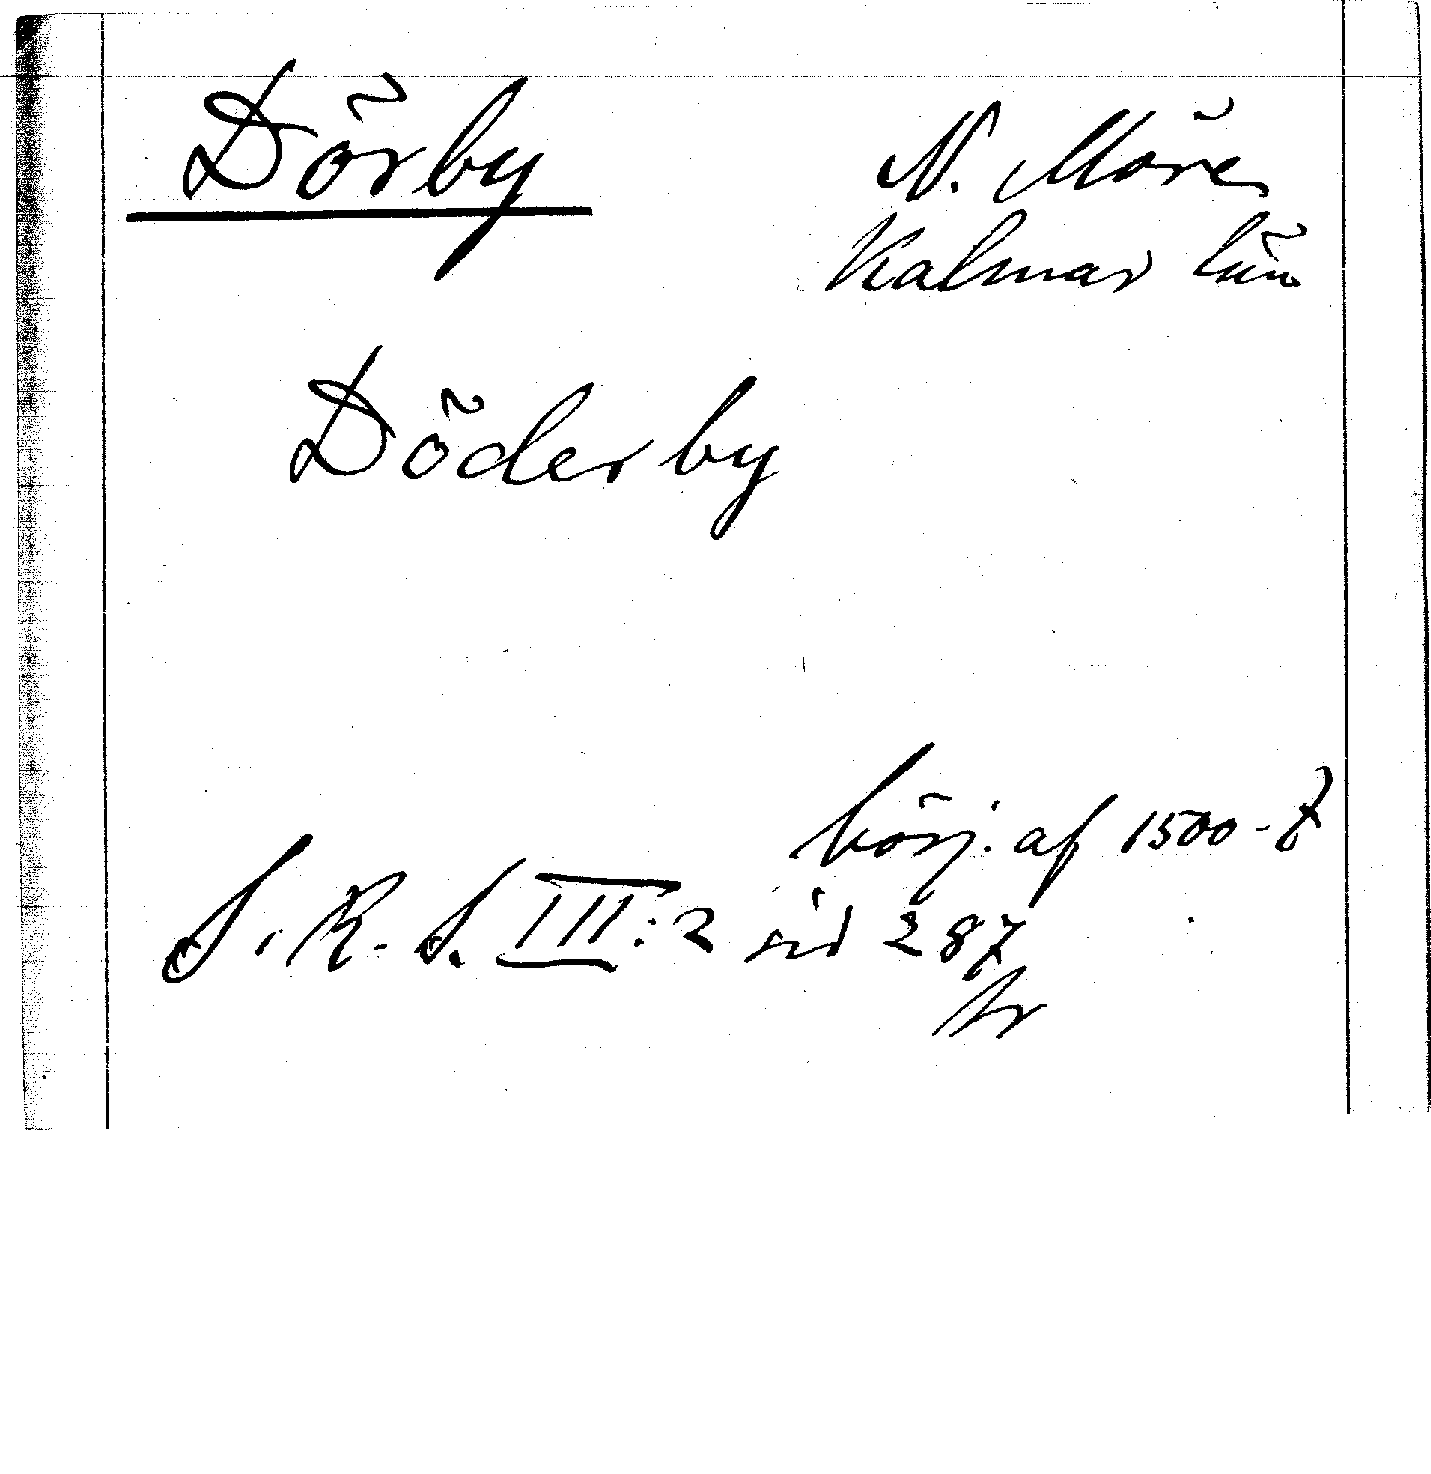 Dörby
N. Möre
Kalmar län
Döderby
börj. af 1500-t
S. R. S. III:2 sid 287
tr